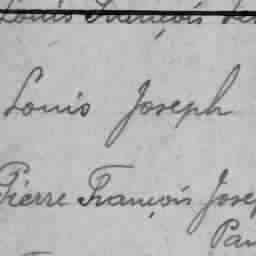 Louis François
Louis Joseph
Pierre François